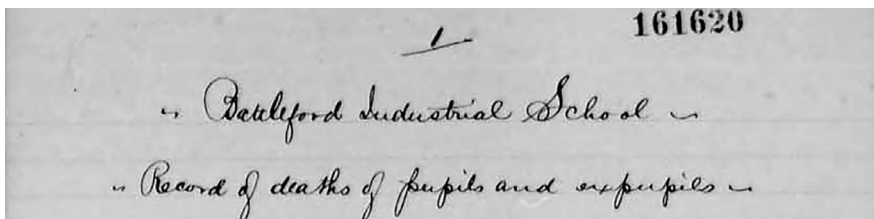 1
161620
~ Battleford Industrial School ~
~ Record of deaths of pupils and expupils ~